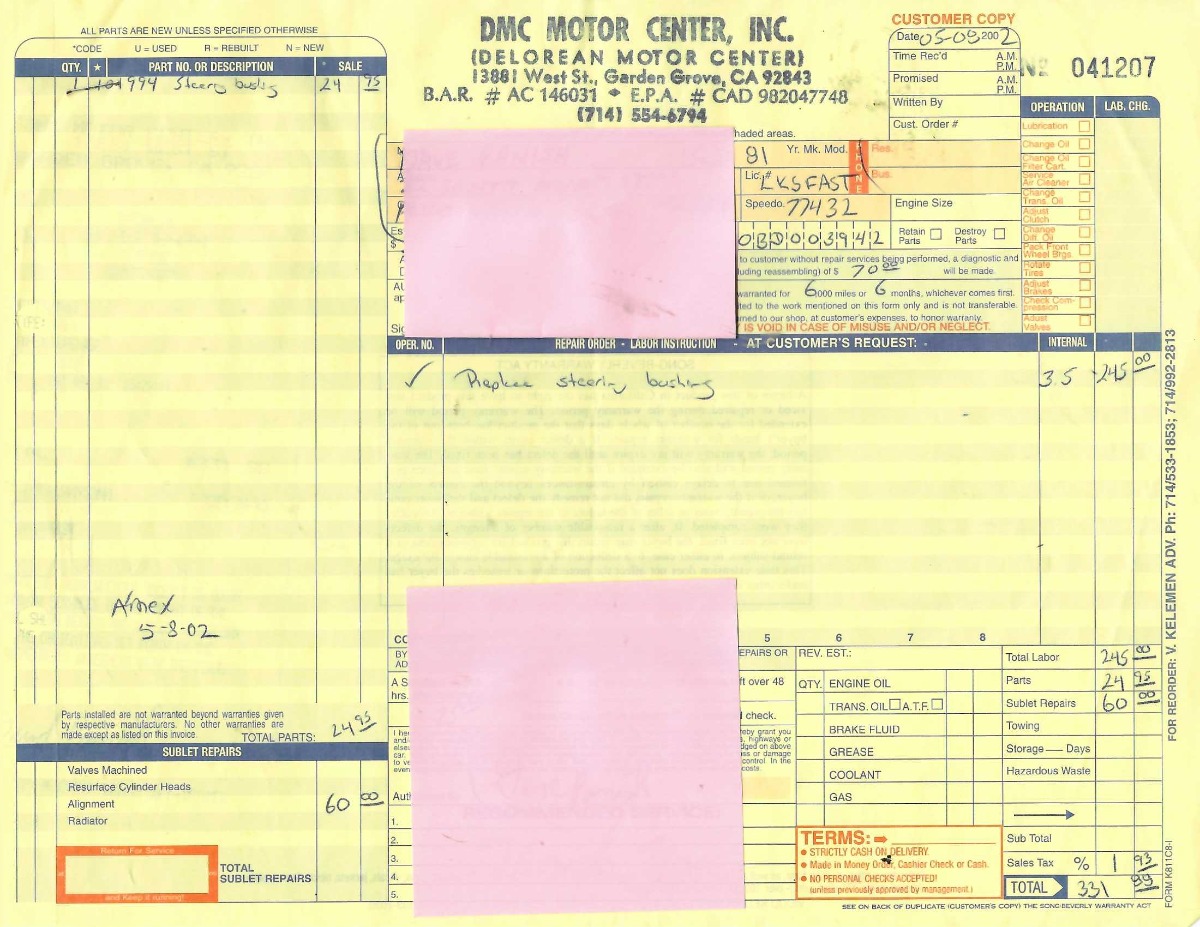 ALL PARTS ARE NEW UNLESS SPECIFIED OTHERWISE
*CODE U = USED R = REBUILT N = NEW
QTY. ★ PART NO. OR DESCRIPTION * SALE
1 101994 Steering bushing 24 95
DMC MOTOR CENTER, INC.
(DELOREAN MOTOR CENTER)
13881 West St., Garden Grove, CA 92843
B.A.R. # AC 146031 * E.P.A. # CAD 982047748
(714) 554-6794
CUSTOMER COPY
Date 05-08 2002
Time Rec'd A.M. P.M.
Promised A.M. P.M.
Written By
Cust. Order #
№ 041207
OPERATION LAB. CHG.
Lubrication
Change Oil
Change Oil Filter Cart.
Service Air Cleaner
Change Trans. Oil
Adjust Clutch
Change Diff. Oil
Pack Front Wheel Brgs.
Rotate Tires
Adjust Brakes
Check Compression
Adjust Valves
haded areas.
81 Yr. Mk. Mod.
PHONE
Res.
Bus.
Lic.# LKSFAST
Speedo. 77432 Engine Size
0BD003942
Retain Parts Destroy Parts
to customer without repair services being performed, a diagnostic and
luding reassembling) of $ 70 00 will be made.
warranted for 6,000 miles or 6 months, whichever comes first.
ited to the work mentioned on this form only and is not transferable.
rned to our shop, at customer's expenses, to honor warranty.
Y IS VOID IN CASE OF MISUSE AND/OR NEGLECT.
OPER. NO. REPAIR ORDER - LABOR INSTRUCTION - AT CUSTOMER'S REQUEST: - INTERNAL
✓ Replace steering bushing 3.5 245 00
Amex
5-8-02
Parts installed are not warranted beyond warranties given
by respective manufacturers. No other warranties are
made except as listed on this invoice.
TOTAL PARTS: 24 95
SUBLET REPAIRS
Valves Machined
Resurface Cylinder Heads
Alignment 60 00
Radiator
Return For Service
and Keep it running!
TOTAL
SUBLET REPAIRS
5 6 7 8
EPAIRS OR
ft over 48
d check.
eby grant you
s, highways or
dged on above
ss or damage
control. In the
costs.
1.
2.
3.
4.
5.
REV. EST.:
QTY. ENGINE OIL
TRANS. OIL A.T.F.
BRAKE FLUID
GREASE
COOLANT
GAS
TERMS:
• STRICTLY CASH ON DELIVERY.
• Made in Money Order, Cashier Check or Cash.
• NO PERSONAL CHECKS ACCEPTED!
(unless previously approved by management.)
Total Labor 245 00
Parts 24 95
Sublet Repairs 60 00
Towing
Storage — Days
Hazardous Waste
Sub Total
Sales Tax % 1 93
TOTAL 331 89
SEE ON BACK OF DUPLICATE (CUSTOMER'S COPY) THE SONG-BEVERLY WARRANTY ACT
FOR REORDER: V. KELEMEN ADV. Ph: 714/533-1853; 714/992-2813
FORM K811C8-I